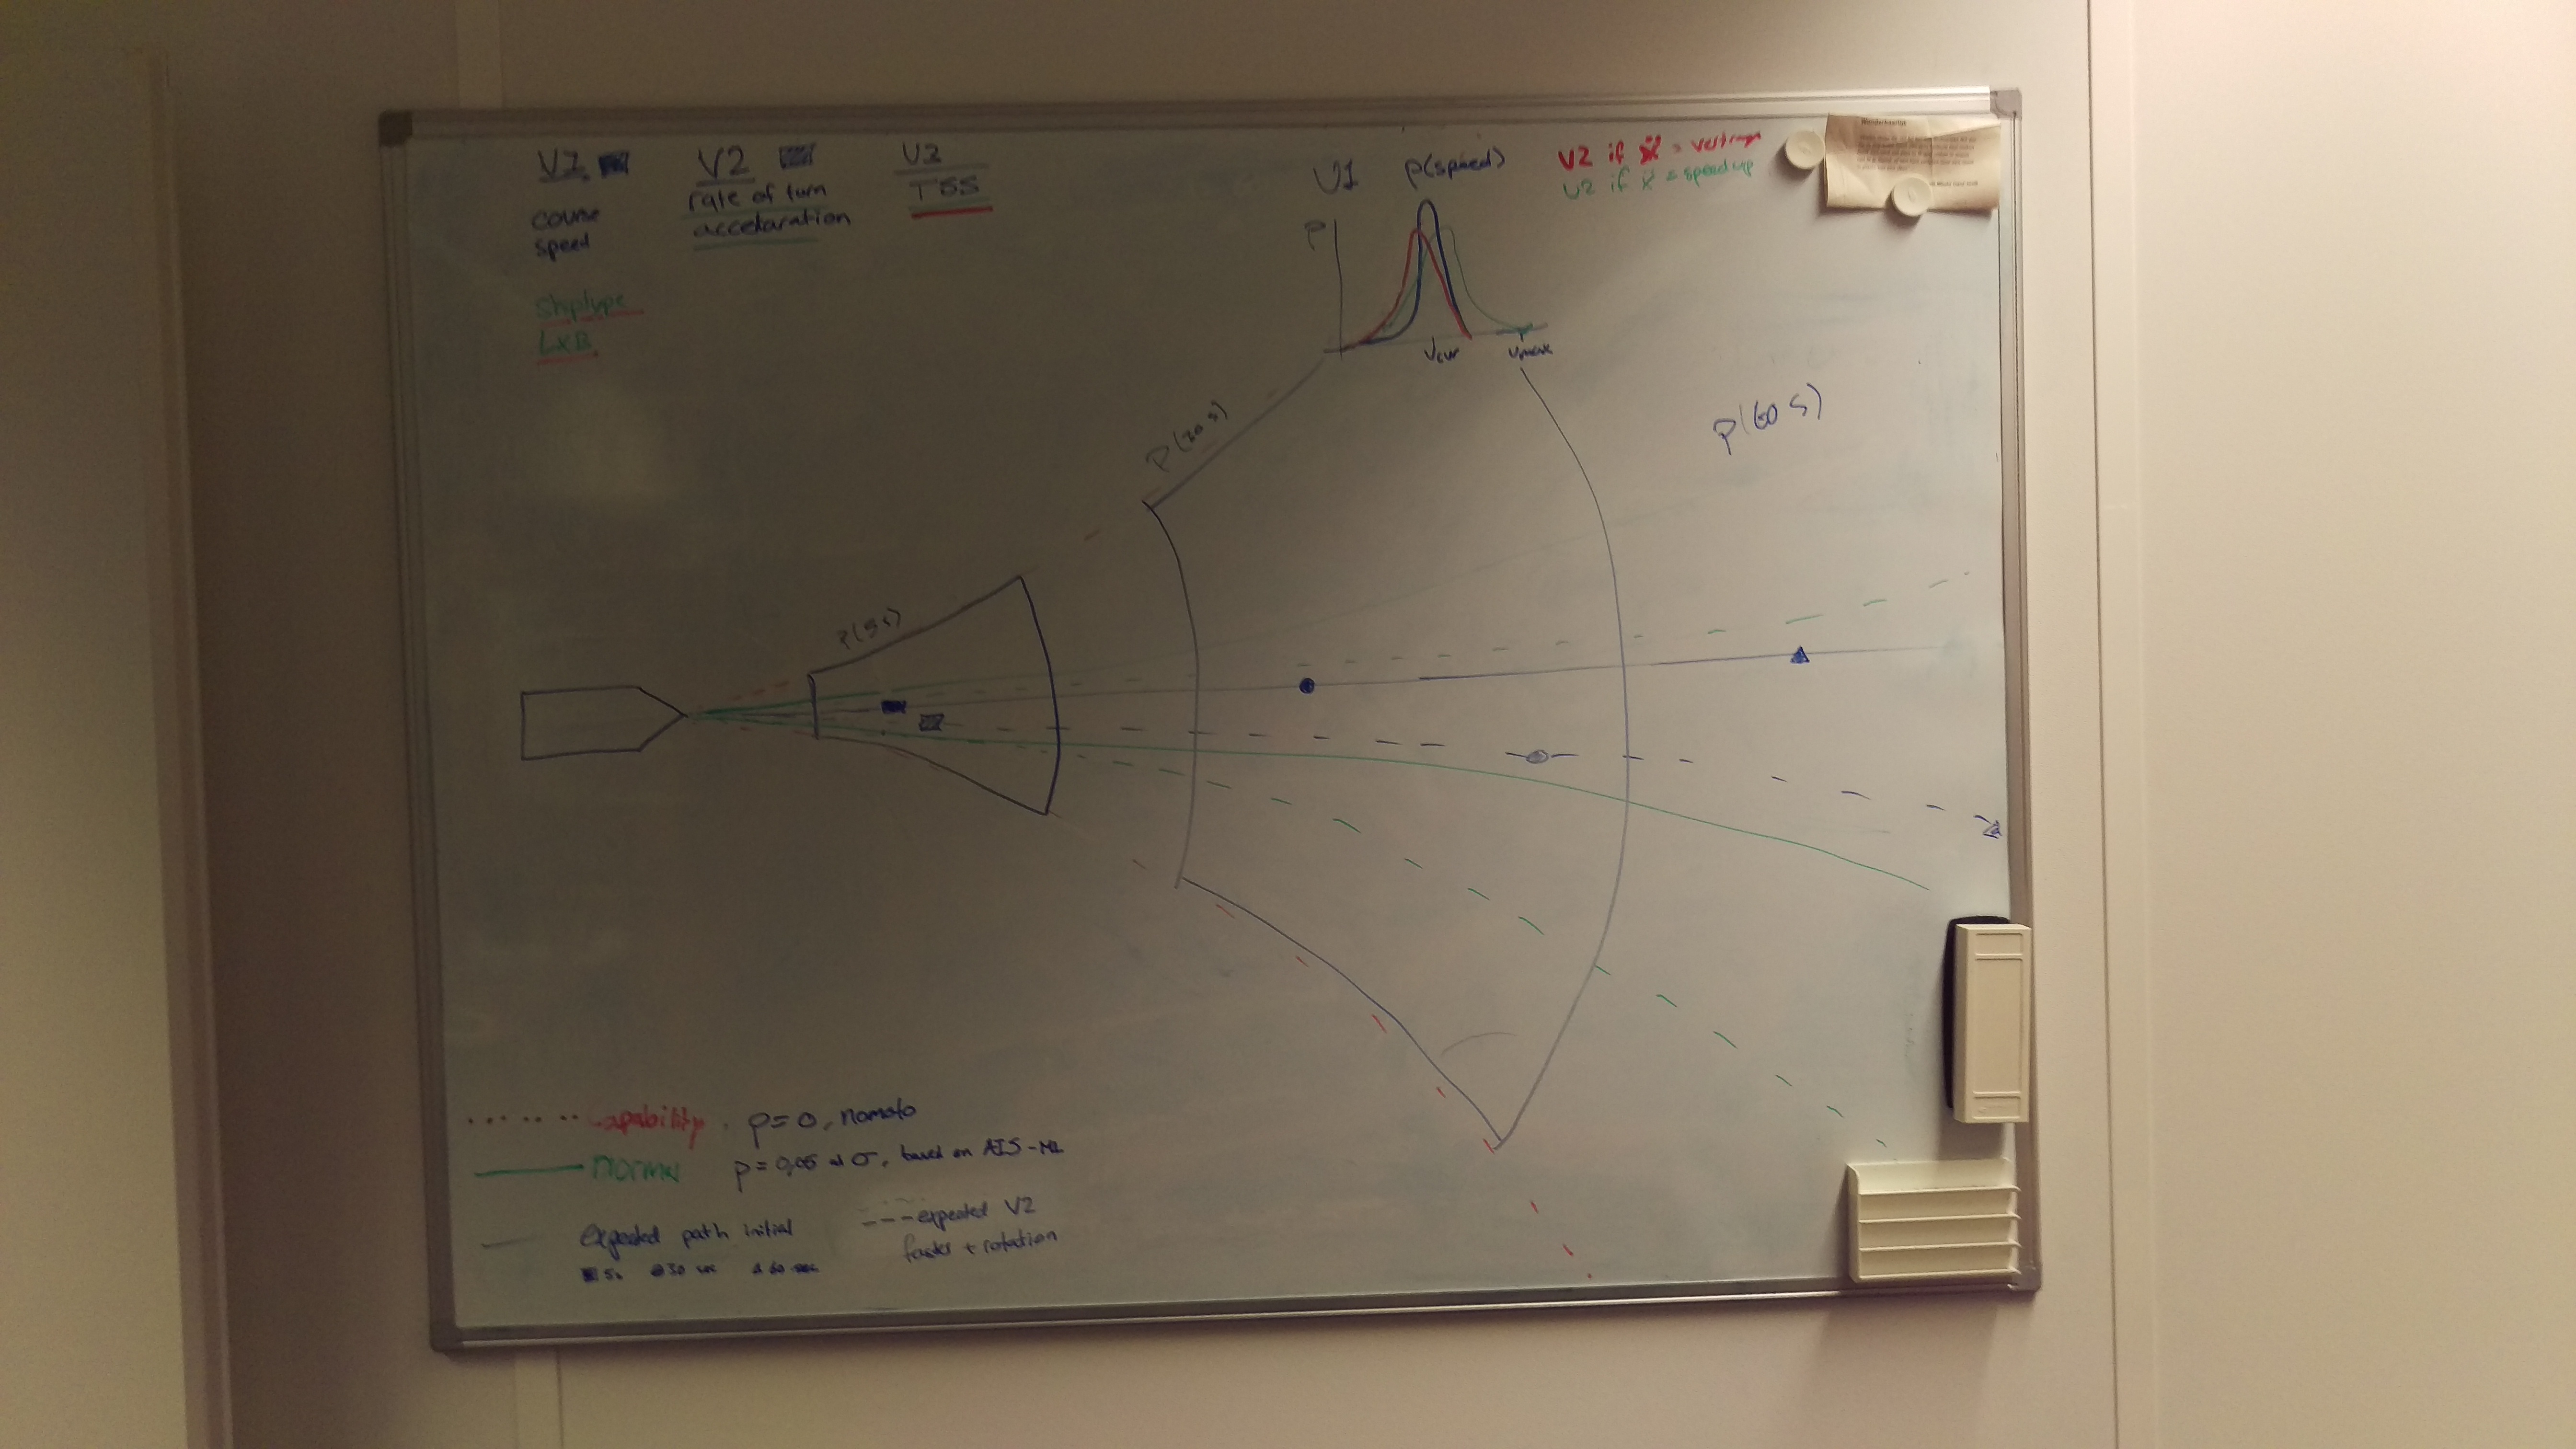 V1
course
speed
Shiptype
LXB
V2
rate of turn
accelaration
V3
TSS
V1 p(speed)
P
Vcur
Vmax
V2 if ẍ = vertrag
V2 if ẍ = speed up
P(5s)
P(30s)
P(60s)
capability p=0, nomoto
normal p=0,05 σ, based on AIS-ML
Expected path initial
5s 30 sec 60 sec
expected V2
faster + rotation